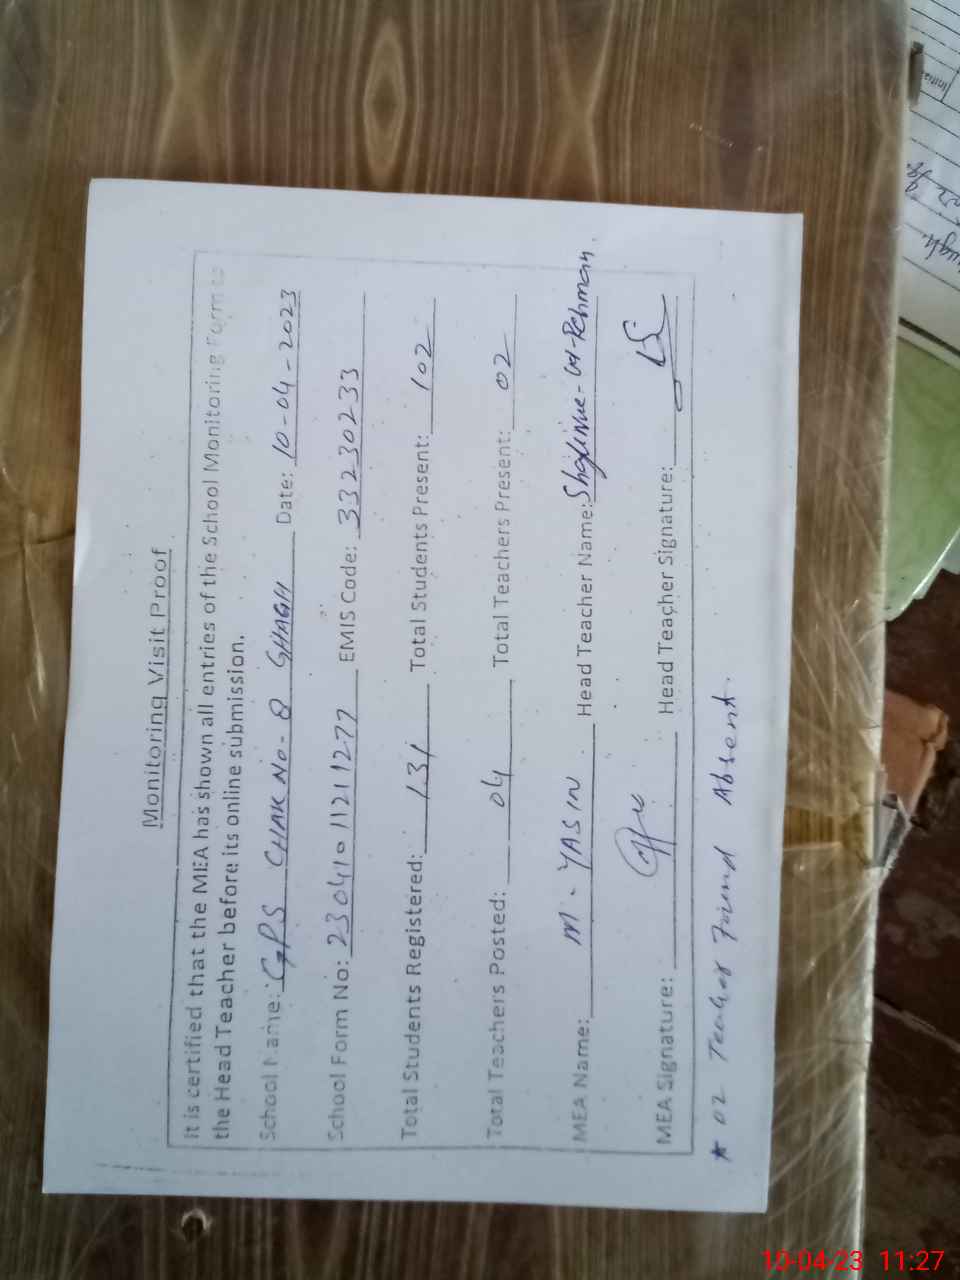 Monitoring Visit Proof
It is certified that the MEA has shown all entries of the School Monitoring Form to
the Head Teacher before its online submission.
School Name: GPS CHAK NO-8 GHAGH Date: 10-04-2023
School Form No: 23041011211277 EMIS Code: 33230233
Total Students Registered: 131 Total Students Present: 102
Total Teachers Posted: 04 Total Teachers Present: 02
MEA Name: M. YASIN Head Teacher Name: -ur-Rehman
MEA Signature: Head Teacher Signature:
* 02 Teacher Found Absent.
Initial
10-04-23 11:27